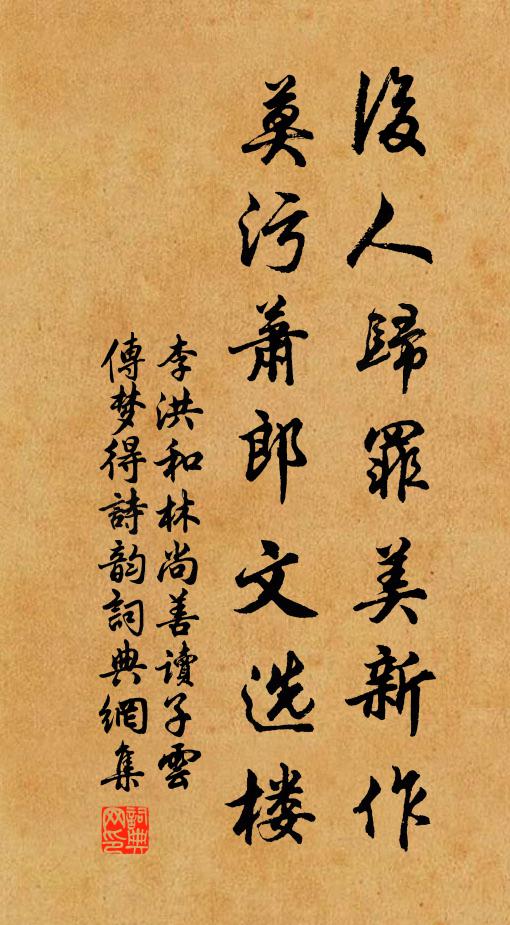 後人歸罪美新作
莫污蕭郎文选楼
李洪和林尚善讀子雲
傳梦得詩韵詞典網集
詞典
网印